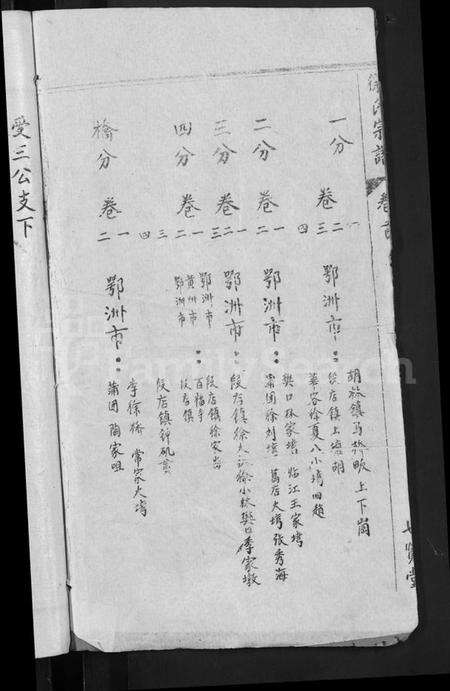 徐氏宗譜
卷首
七賢堂
一分 卷 一 二 三 四
鄂洲市：
胡林鎮馬橋畈 上下崗
段店鎮上塘胡
華容徐夏八小塆田趙
二分 卷 一 二
鄂洲市：
樊口林家塆 临江王家塆
蒲团徐刘塆 葛店大塆 张秀海
三分 卷 一 二 三
鄂洲市：
段店鎮徐大 徐小林 樊口李家墩
四分 卷 一 二 三 四
鄂洲市：
黄洲市
鄂洲市
段店鎮徐家
百福寺
段店鎮
段店鎮
橋分 卷 一 二
鄂洲市：
李徐橋 常家大塆
蒲团 陶家咀
受三公支下
FamilySearch